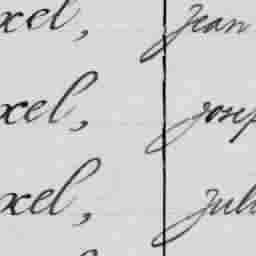 xel, Jean
xel, Josep
xel, Juli